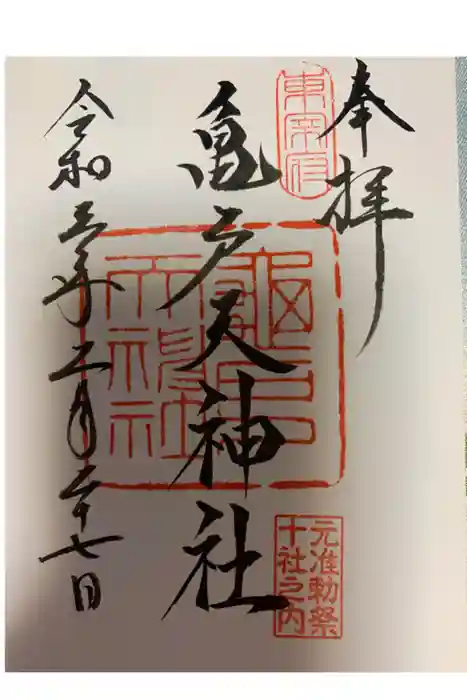 奉拝
東宰府
亀戸天神社
亀戸天神社
元准勅祭
十社之内
令和三年二月二十七日